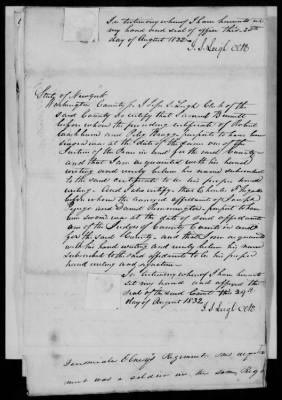 In testimony whereof I have hereunto set
my hand and seal of office this 24th
day of August 1832
J. S. Leigh Clk
State of Newyork
Washington County ss I Jesse S. Leigh Clerk of the
said County do certify that Samuel Burnett
before whom the preceding certificate of Robert
Cockburn and Peleg Bragg purport to have been
signed was at the date of the same one of the
Justices of the Peace in and for the said County
and that I am acquainted with his hand
writing and verily believe his name subscribed
to the said certificate to be his proper hand
writing. And I also certify that Charles F. Ingalls
before whom the annexed affidavits of Joseph
and Daniel purport to have
been sworn was at the date of said affidavits
one of the Judges of County Courts in and
for the said County that I am acquainted
with his hand writing and verily believe his name
subscribed to the said affidavits to be his proper
hand writing and signature
In testimony whereof I have hereunto
set my hand and affixed the
seal of the said Court this 24th
day of August 1832
J. S. Leigh Clk
Regiment
was a soldier in the same Reg